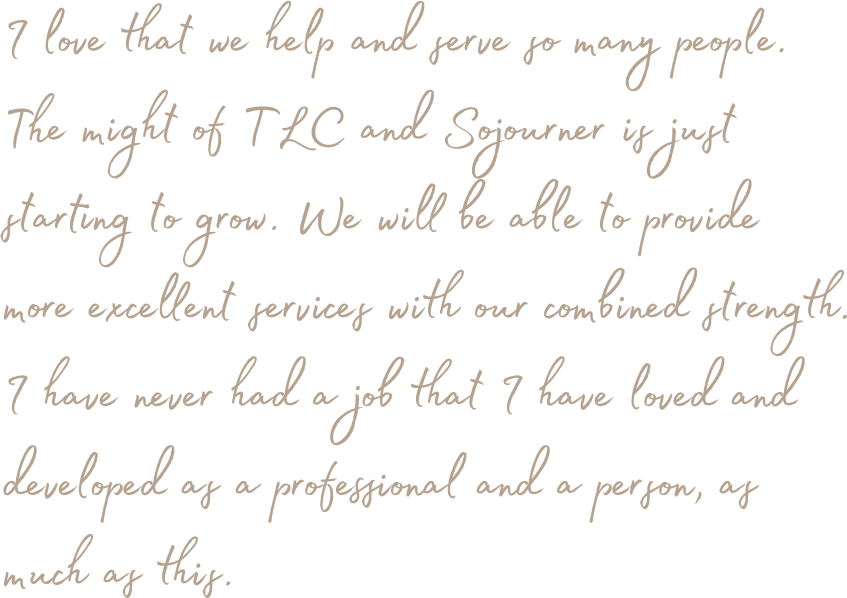 I love that we help and serve so many people.
The might of TLC and Sojourner is just
starting to grow. We will be able to provide
more excellent services with our combined strength.
I have never had a job that I have loved and
developed as a professional and a person, as
much as this.